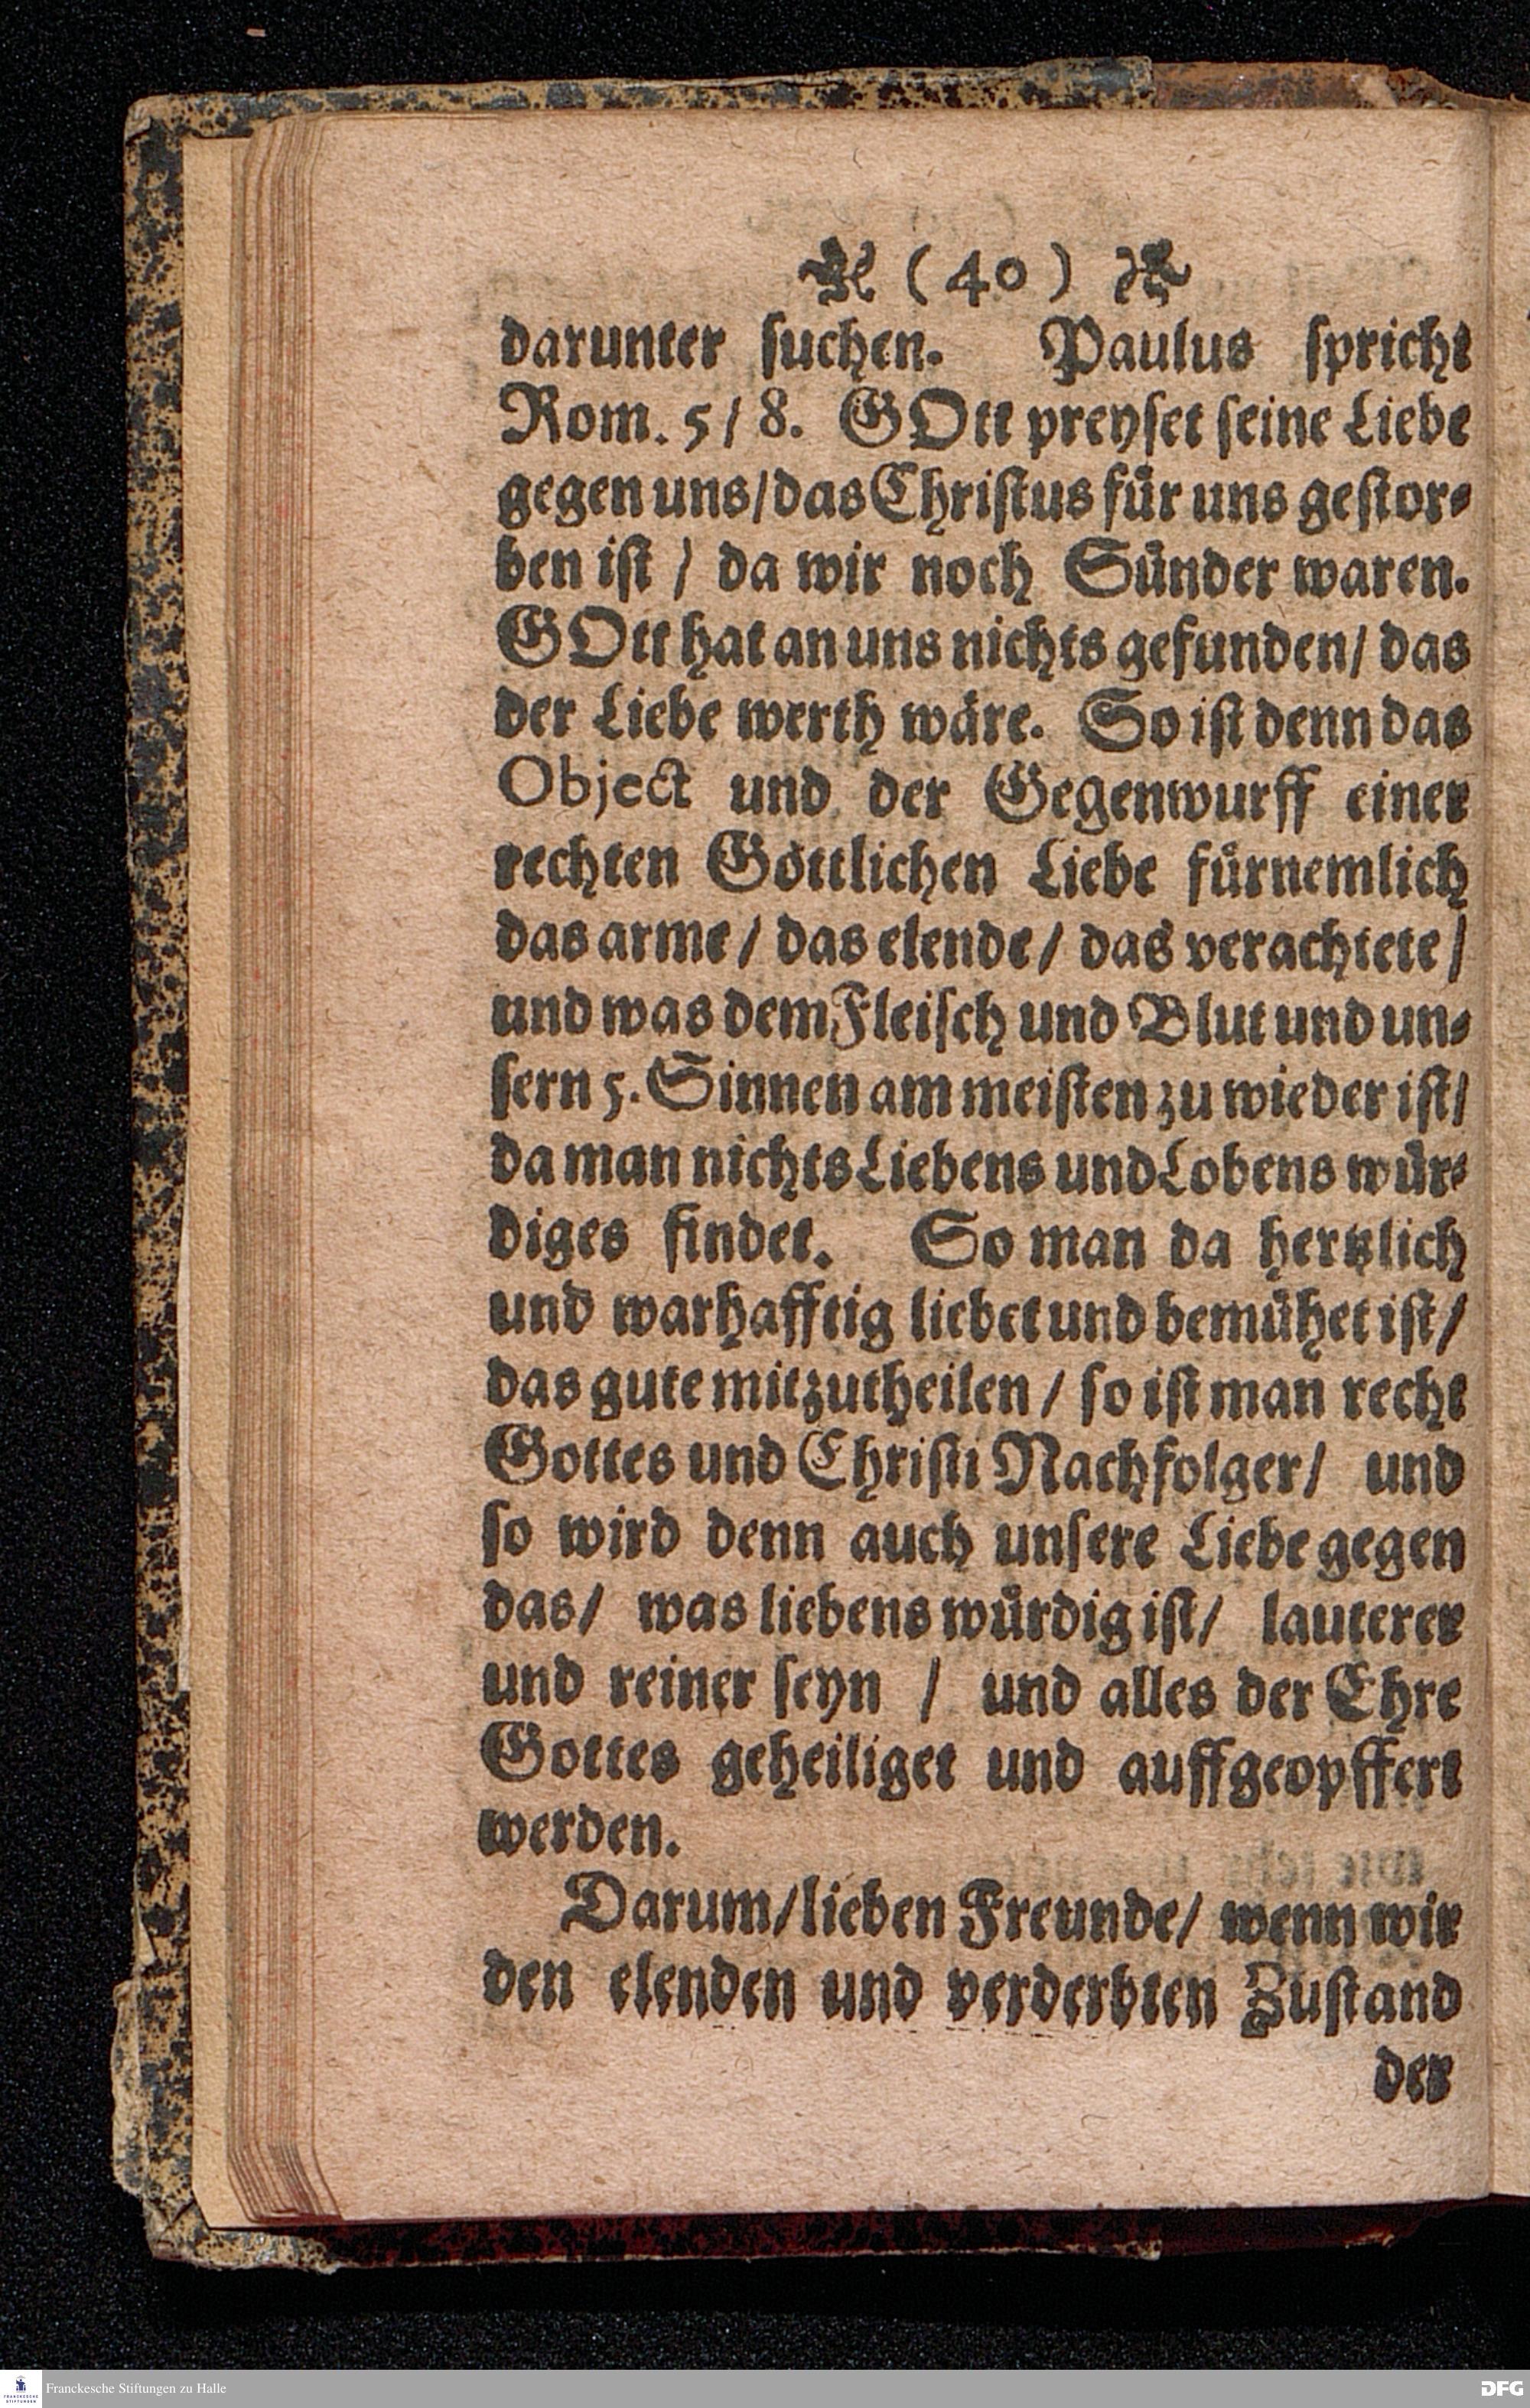 (40)
darunter suchen. Paulus spricht
Rom. 5/8. GOtt preyset seine Liebe
gegen uns/das Christus für uns gestor⸗
ben ist / da wir noch Sünder waren.
GOtt hat an uns nichts gefunden/ das
der Liebe werth wäre. So ist denn das
Object und der Gegenwurff einer
rechten Göttlichen Liebe fürnemlich
das arme / das elende / das verachtete /
und was dem Fleisch und Blut und un⸗
sern 5. Sinnen am meisten zu wieder ist/
da man nichts Liebens und Lobens wür⸗
diges findet. So man da hertzlich
und warhafftig liebet und bemühet ist /
das gute mitzutheilen / so ist man recht
Gottes und Christi Nachfolger/ und
so wird denn auch unsere Liebe gegen
das/ was liebens würdig ist/ lauterer
und reiner seyn / und alles der Ehre
Gottes geheiliget und auffgeopffert
werden.
Darum/lieben Freunde/ wenn wir
den elenden und verderbten Zustand
der
Franckesche Stiftungen zu Halle
DFG